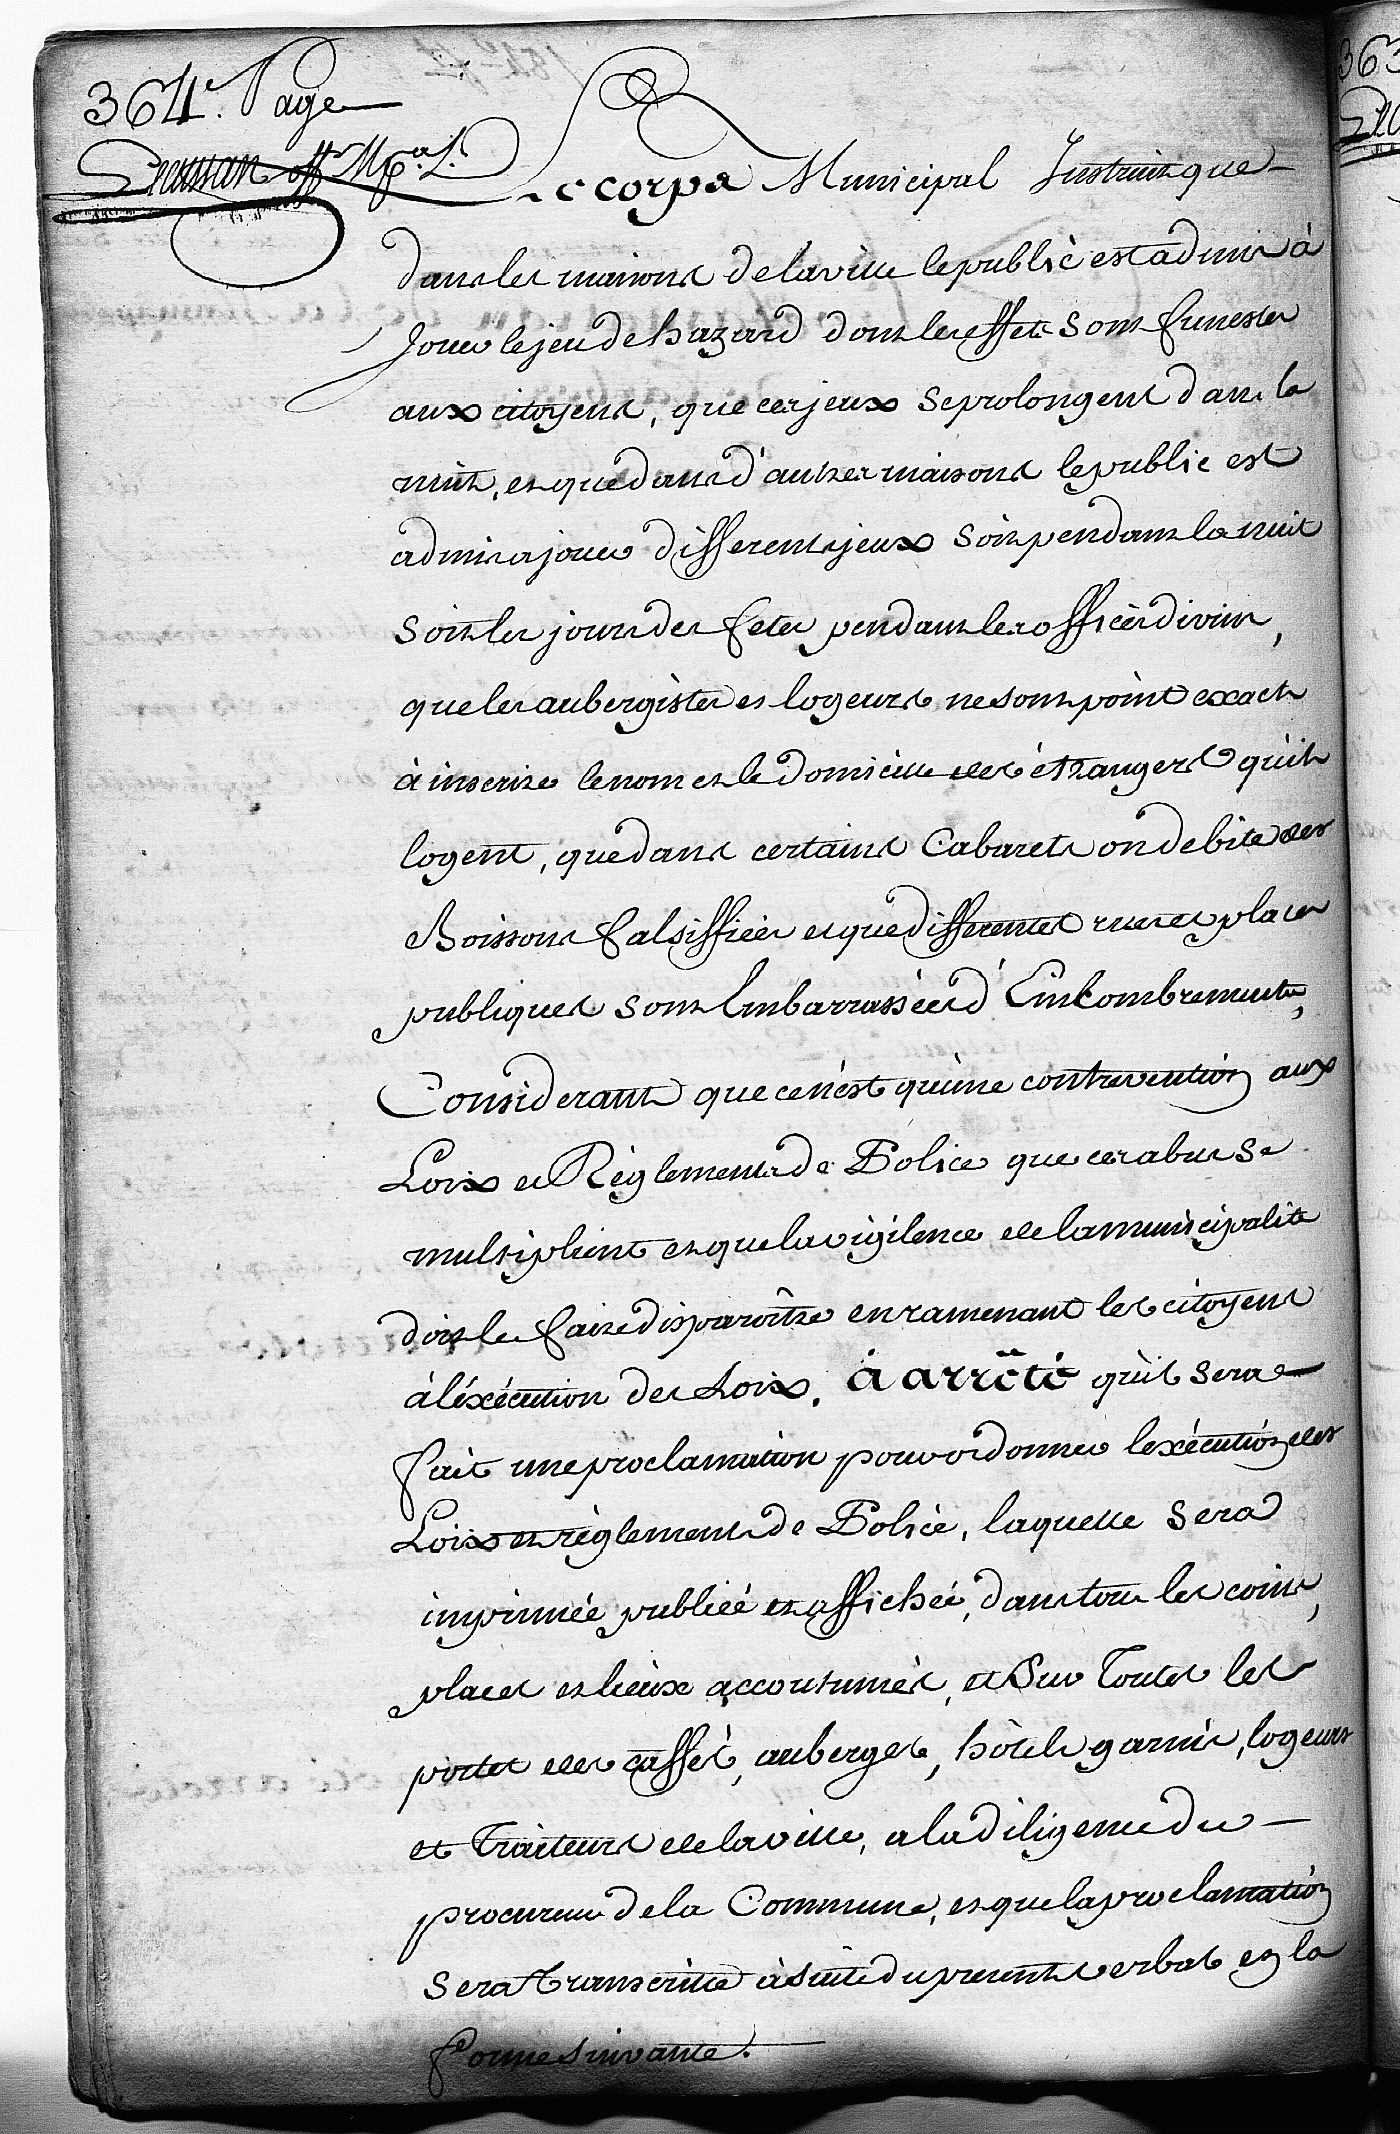 364e. Page
offr Mpal.
Le corps Municipal Instruit que
dans les maisons de la ville le public est admis à
Jouer le jeu de hazard dont les effets sont funestes
aux citoyens, que ces jeux se prolongent dans la
nuit, et que dans d'autres maisons le public est
admis a jouer differents jeux soit pendant la nuit
soit les jours des fetes pendant les officès divins,
que les aubergistes et logeurs ne sont point exacts
à inscrire le nom et le domicille des étrangers qu'ils
logent, que dans certains Cabarets on debite des
Boissons falsiffiées et que differentes rues et places
publiques sont Embarrassées d'Emcombrements,
Considerant que ce n'est qu'une contravention aux
Loix et Règlements de Police que ces abus se
multiplient et que la vigilence de la municipalité
doit les faire disparoître en ramenant les citoyens
à l'éxécution des Loix. à arrêté qu'il sera
fait une proclamation pour ordonner l'exécution des
Loix et règlements de Police, laquelle sera
imprimée publiée et affichée, dans tous les coins,
places et lieux accoutumés, et Sur Toutes les
portes des caffés, auberges, hôtels garnis, logeurs
et Traiteurs de la ville, a la diligence du
procureur de la Commune, et que la proclamation
sera Transcritte à suite du present verbal en la
forme suivante.
363